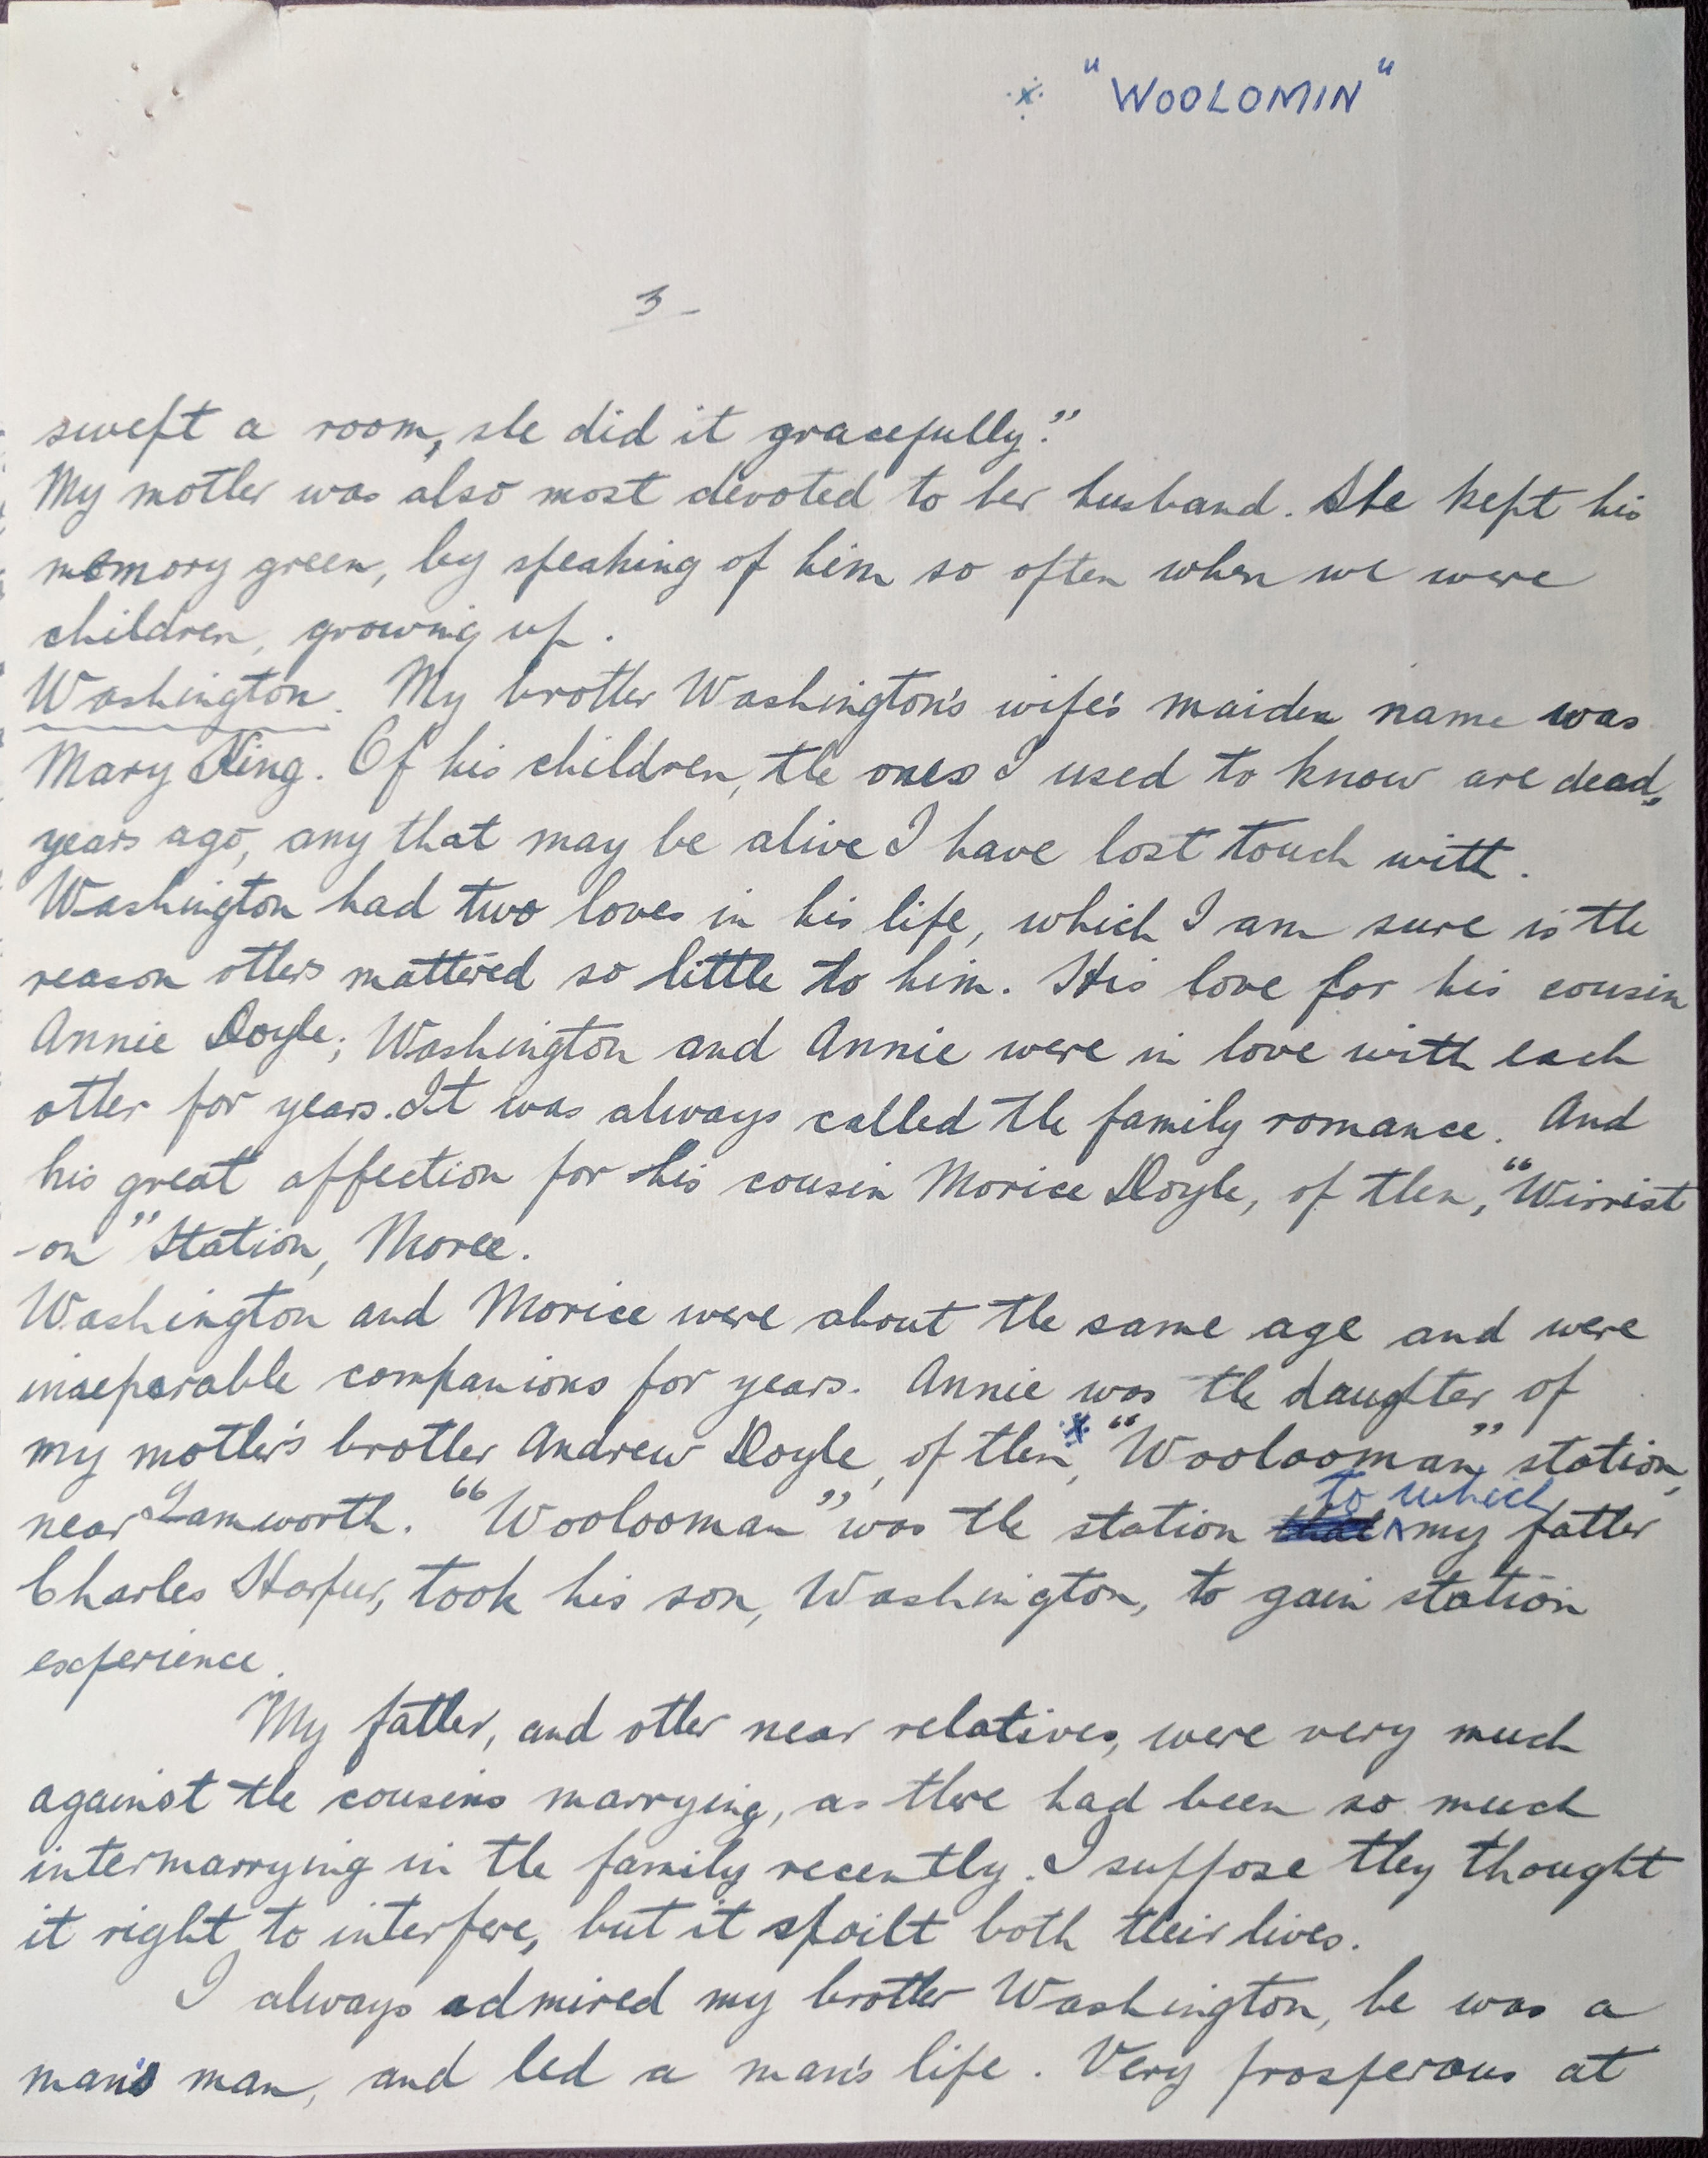 * "WOOLOMIN"
3 -
swept a room, she did it gracefully."
My mother was also most devoted to her husband. She kept his
memory green, by speaking of him so often when we were
children, growing up.
Washington. My brother Washington's wife's maiden name was
Mary King. Of his children, the ones I used to know are dead,
years ago, any that may be alive I have lost touch with.
Washington had two loves in his life, which I am sure is the
reason others mattered so little to him. His love for his cousin
Annie Doyle; Washington and Annie were in love with each
other for years. It was always called the family romance. And
his great affection for his cousin Morice Doyle, of then, "Wirrist
-on" Station, Moree.
Washington and Morice were about the same age and were
inseparable companions for years. Annie was the daughter of
my mother's brother Andrew Doyle, of then, * "Woolooman" station,
near Tamworth. "Woolooman" was the station that to which my father
Charles Harpur, took his son, Washington, to gain station
experience.
My father, and other near relatives, were very much
against the cousins marrying, as there had been so much
intermarrying in the family recently. I suppose they thought
it right to interfere, but it spoilt both their lives.
I always admired my brother Washington, he was a
man's man, and led a man's life. Very prosperous at